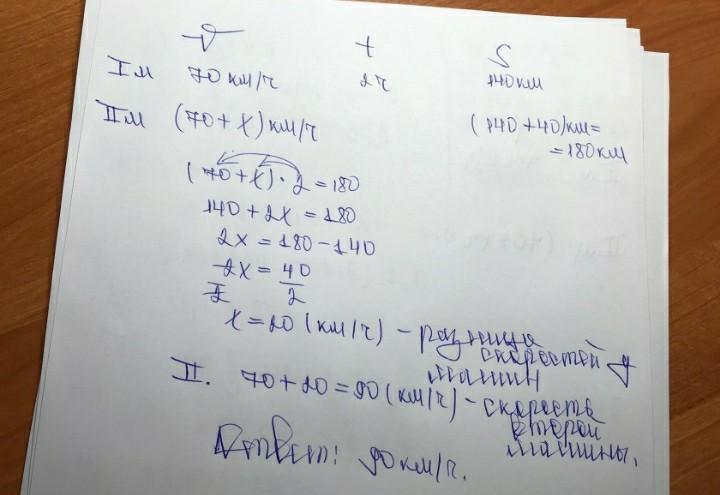 V t S
I м 70 км/ч 2ч 140 км
II м (70 + x) км/ч (140 + 40) км =
= 180 км
(70 + x) · 2 = 180
140 + 2x = 180
2x = 180 - 140
2x/2 = 40/2
x = 20 (км/ч) - разница
скоростей у
машин
II. 70 + 20 = 90 (км/ч) - скорость
второй
машины.
Ответ: 90 км/ч.